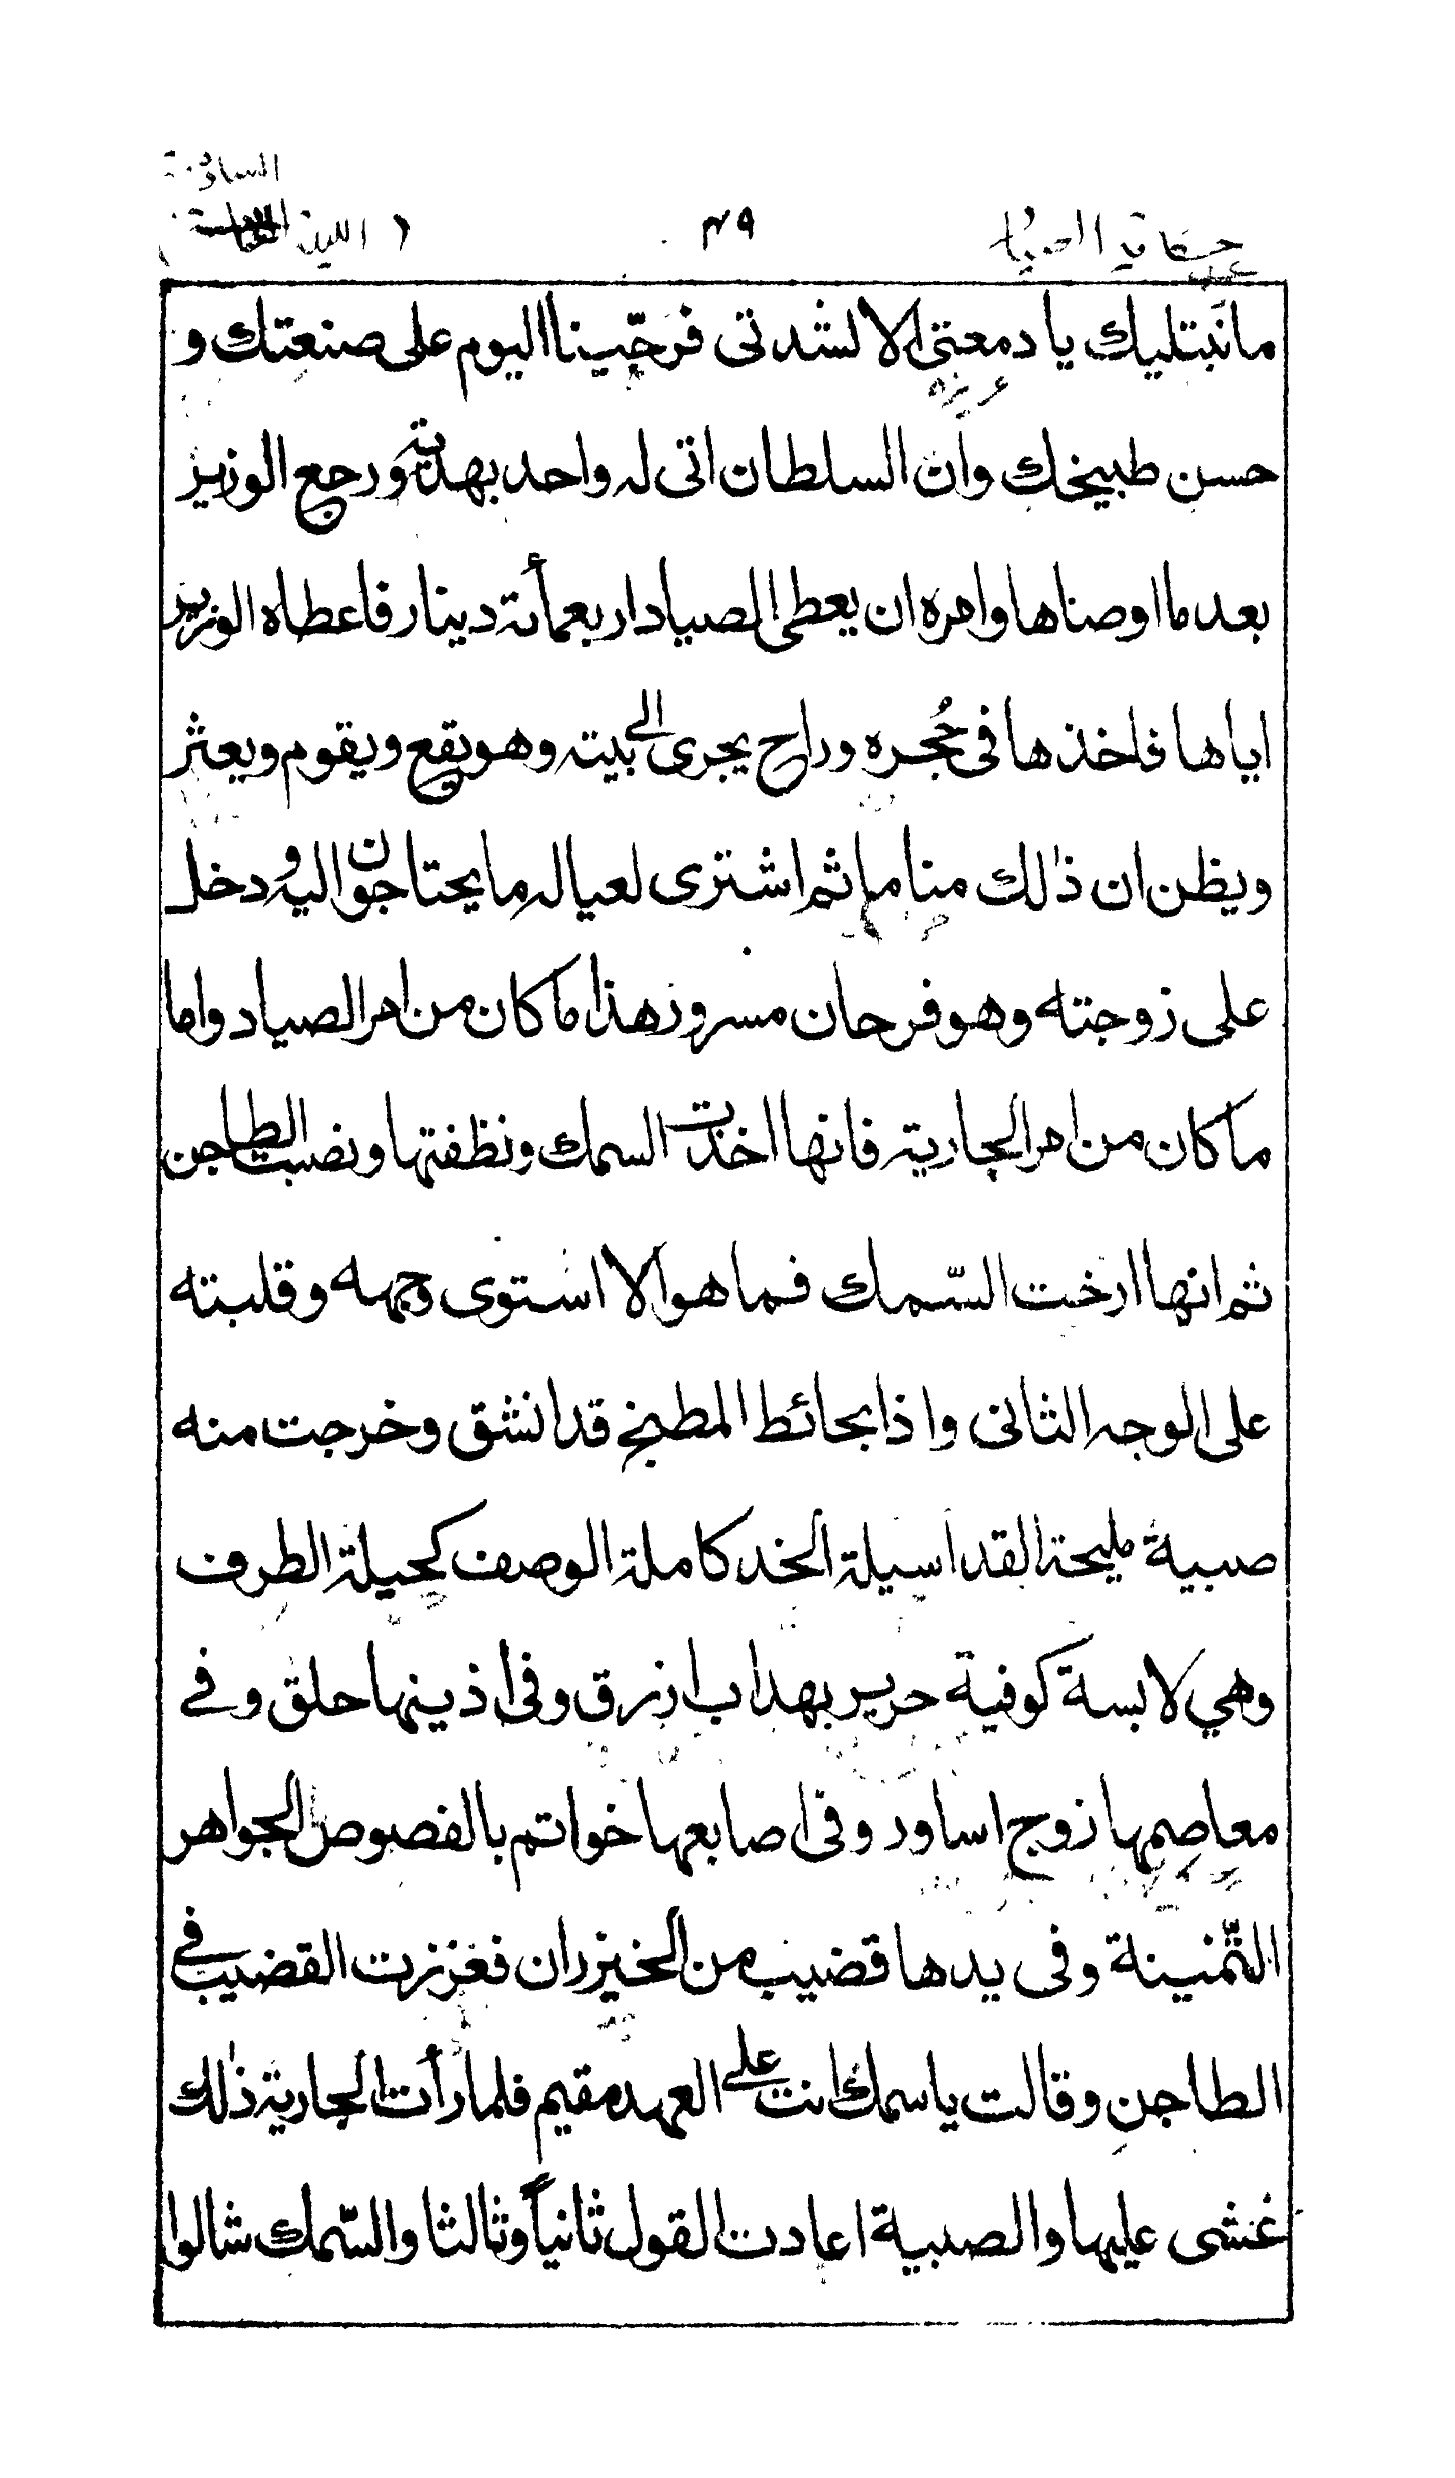 حكاية الصياد ٤٩ الليلة السادسة
ما نبتليك يا دمعتى الا لشدتى فرجّينا اليوم على صنعتك و
حسن طبيخك وان السلطان اتى له واحد بهدية ورجع الوزير
بعد ما اوصاها وامره ان يعطى الصياد اربعمأئة دينار فاعطاه الوزير
اياها فاخذها فى حُجره وراح يجرى الى بيته وهو يقع ويقوم ويعثر
ويظن ان ذلك مناما ثم اشترى لعياله ما يحتاجون اليه و دخل
على زوجته وهو فرحان مسرور هذا ما كان من امر الصياد واما
ما كان من امر الجارية فانها اخذت السمك ونظفتها ونصبت الطاجن
ثم انها ارخت السّمك فما هو الا استوى وجهه وقلبته
على الوجه الثانى واذا بحائط المطبخ قد انشق وخرجت منه
صبية مليحة القد اسيلة الخد كاملة الوصف كحيلة الطرف
وهي لابسة كوفية حرير بهداب ازرق وفى اذينها حلق وفى
معاصمها زوج اساور وفى اصابعها خواتم بالفصوص الجواهر
الثّمنينة وفى يدها قضيب من الخيزران فغرزت القضيب فى
الطاجن وقالت يا سمك انت على العهد مقيم فلما رأت الجارية ذلك
غشى عليها والصبية اعادت القول ثانياً وثالثا والسّمك شالوا